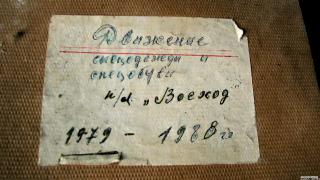 Движение
спецодежды и
спецобуви
к/д. „Восход"
1979 - 1988 гг